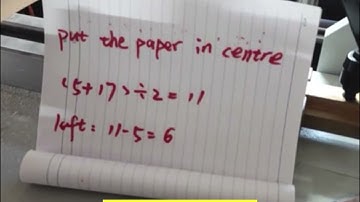 put the paper in centre
(5+17)÷2=11
left: 11-5=6